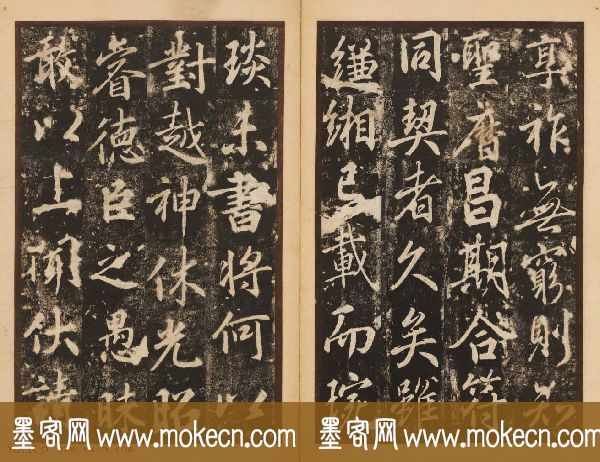 享祚無窮則知
聖曆昌期合符
同契者久矣雖
縑緗已載而琬
琰未書將何以
對越神休光昭
睿德臣之愚昧
敢以上聞伏請
墨客网 www.mokecn.com 墨客网 www.mokecn.com